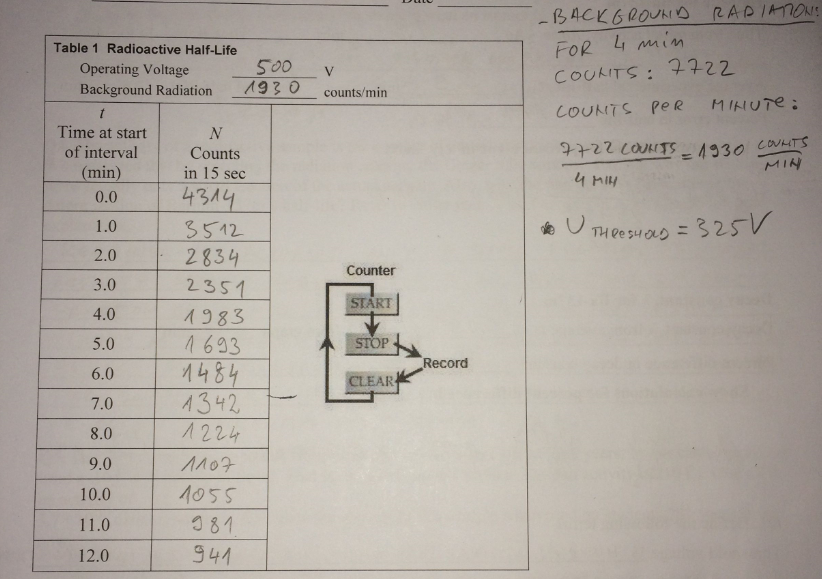 Date
Table 1 Radioactive Half-Life
Operating Voltage 500 V
Background Radiation 1930 counts/min
t
Time at start
of interval
(min)
N
Counts
in 15 sec
0.0 4314
1.0 3512
2.0 2834
3.0 2351
4.0 1983
5.0 1693
6.0 1484
7.0 1342
8.0 1224
9.0 1107
10.0 1055
11.0 981
12.0 941
Counter
START
STOP
Record
CLEAR
- BACKGROUND RADIATION:
FOR 4 min
COUNTS: 7722
COUNTS PER MINUTE:
7722 COUNTS / 4 MIN = 1930 COUNTS / MIN
* U THRESHOLD = 325V